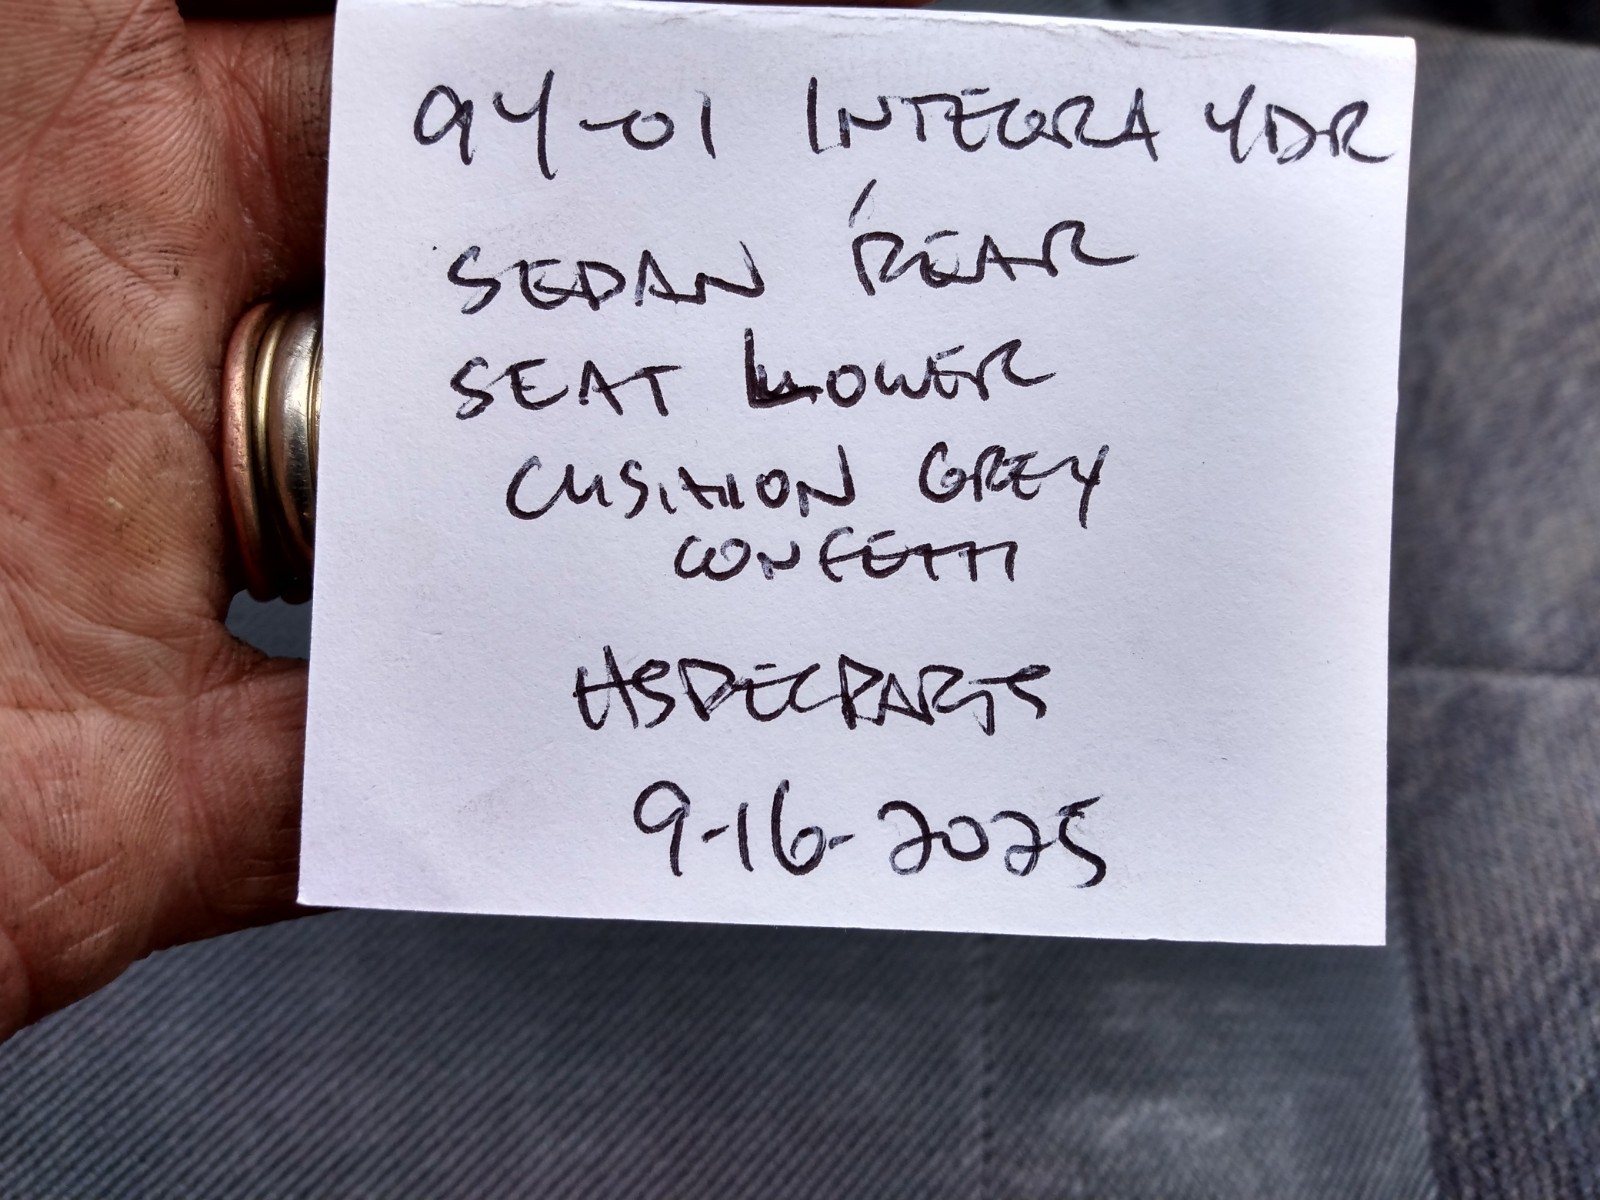 94-01 INTEGRA 4DR
SEDAN REAR
SEAT LOWER
CUSHION GREY
CONFETTI
HSPECPARTS
9-16-2025